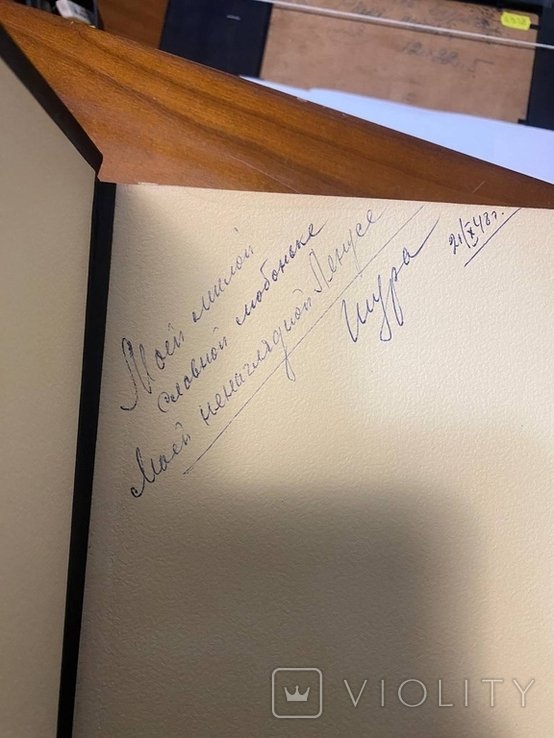 Моей милой
славной любоньке
Моей ненаглядной Ленусе
Шура
21/X 48 г.
VIOLITY